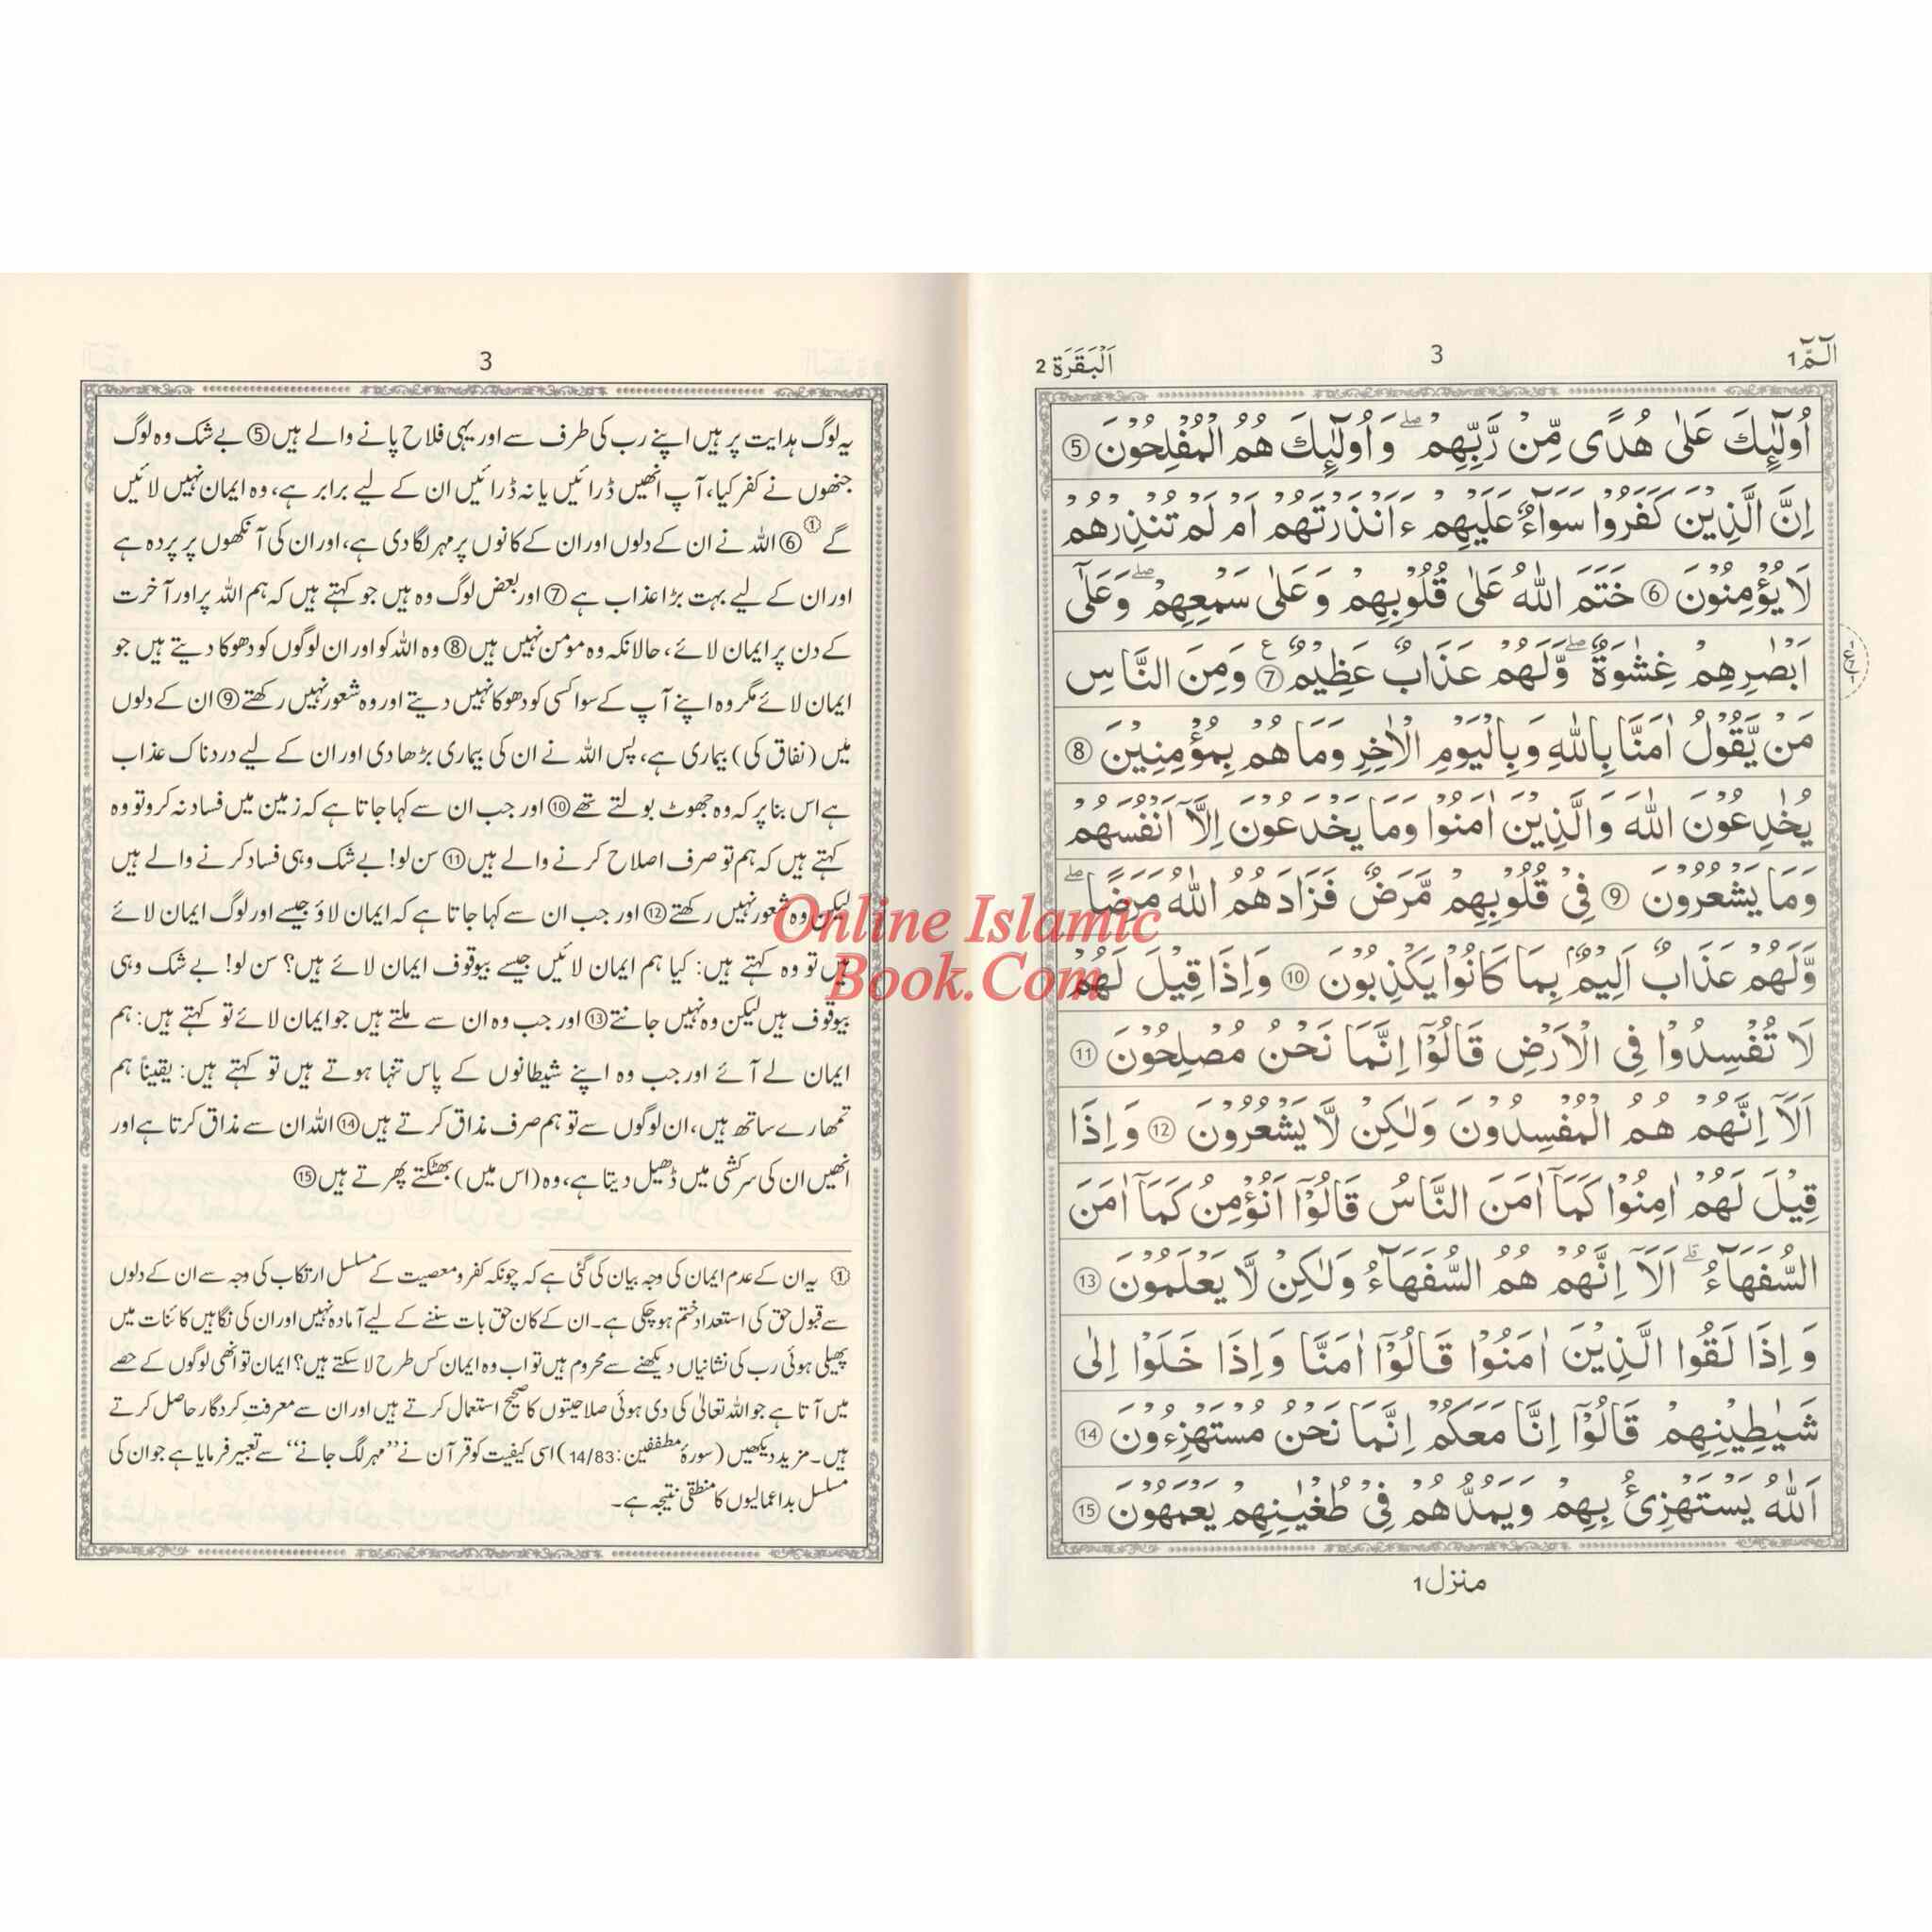 الٓمّٓ 1
3
اَلْبَقَرَة 2
اُولٰٓئِكَ عَلٰى هُدًى مِّنْ رَّبِّهِمْ ۖ وَاُولٰٓئِكَ هُمُ الْمُفْلِحُوْنَ ⑤
اِنَّ الَّذِيْنَ كَفَرُوْا سَوَآءٌ عَلَيْهِمْ ءَاَنْذَرْتَهُمْ اَمْ لَمْ تُنْذِرْهُمْ
لَا يُؤْمِنُوْنَ ⑥ خَتَمَ اللّٰهُ عَلٰى قُلُوْبِهِمْ وَعَلٰى سَمْعِهِمْ ۖ وَعَلٰٓى
اَبْصٰرِهِمْ غِشٰوَةٌ ۖ وَّلَهُمْ عَذَابٌ عَظِيْمٌ ⑦ ع وَمِنَ النَّاسِ
مَنْ يَّقُوْلُ اٰمَنَّا بِاللّٰهِ وَبِالْيَوْمِ الْاٰخِرِ وَمَا هُمْ بِمُؤْمِنِيْنَ ⑧
يُخٰدِعُوْنَ اللّٰهَ وَالَّذِيْنَ اٰمَنُوْا وَمَا يَخْدَعُوْنَ اِلَّآ اَنْفُسَهُمْ
وَمَا يَشْعُرُوْنَ ⑨ فِيْ قُلُوْبِهِمْ مَّرَضٌ فَزَادَهُمُ اللّٰهُ مَرَضًا ۖ
وَّلَهُمْ عَذَابٌ اَلِيْمٌ بِمَا كَانُوْا يَكْذِبُوْنَ ⑩ وَاِذَا قِيْلَ لَهُمْ
لَا تُفْسِدُوْا فِى الْاَرْضِ قَالُوْٓا اِنَّمَا نَحْنُ مُصْلِحُوْنَ ⑪
اَلَآ اِنَّهُمْ هُمُ الْمُفْسِدُوْنَ وَلٰكِنْ لَّا يَشْعُرُوْنَ ⑫ وَاِذَا
قِيْلَ لَهُمْ اٰمِنُوْا كَمَآ اٰمَنَ النَّاسُ قَالُوْٓا اَنُؤْمِنُ كَمَآ اٰمَنَ
السُّفَهَآءُ ۗ اَلَآ اِنَّهُمْ هُمُ السُّفَهَآءُ وَلٰكِنْ لَّا يَعْلَمُوْنَ ⑬
وَاِذَا لَقُوا الَّذِيْنَ اٰمَنُوْا قَالُوْٓا اٰمَنَّا وَاِذَا خَلَوْا اِلٰى
شَيٰطِيْنِهِمْ قَالُوْٓا اِنَّا مَعَكُمْ اِنَّمَا نَحْنُ مُسْتَهْزِءُوْنَ ⑭
اَللّٰهُ يَسْتَهْزِئُ بِهِمْ وَيَمُدُّهُمْ فِيْ طُغْيٰنِهِمْ يَعْمَهُوْنَ ⑮
منزل 1
3
یہ لوگ ہدایت پر ہیں اپنے رب کی طرف سے اور یہی فلاح پانے والے ہیں ⑤ بے شک وہ لوگ
جنھوں نے کفر کیا، آپ انھیں ڈرائیں یا نہ ڈرائیں ان کے لیے برابر ہے، وہ ایمان نہیں لائیں
گے ① ⑥ اللہ نے ان کے دلوں اور ان کے کانوں پر مہر لگا دی ہے، اور ان کی آنکھوں پر پردہ ہے
اور ان کے لیے بہت بڑا عذاب ہے ⑦ اور بعض لوگ وہ ہیں جو کہتے ہیں کہ ہم اللہ پر اور آخرت
کے دن پر ایمان لائے، حالانکہ وہ مومن نہیں ہیں ⑧ وہ اللہ کو اور ان لوگوں کو دھوکا دیتے ہیں جو
ایمان لائے مگر وہ اپنے آپ کے سوا کسی کو دھوکا نہیں دیتے اور وہ شعور نہیں رکھتے ⑨ ان کے دلوں
میں (نفاق کی) بیماری ہے، پس اللہ نے ان کی بیماری بڑھا دی اور ان کے لیے دردناک عذاب
ہے اس بنا پر کہ وہ جھوٹ بولتے تھے ⑩ اور جب ان سے کہا جاتا ہے کہ زمین میں فساد نہ کرو تو وہ
کہتے ہیں کہ ہم تو صرف اصلاح کرنے والے ہیں ⑪ سن لو! بے شک وہی فساد کرنے والے ہیں
لیکن وہ شعور نہیں رکھتے ⑫ اور جب ان سے کہا جاتا ہے کہ ایمان لاؤ جیسے اور لوگ ایمان لائے
ہیں تو وہ کہتے ہیں: کیا ہم ایمان لائیں جیسے بیوقوف ایمان لائے ہیں؟ سن لو! بے شک وہی
بیوقوف ہیں لیکن وہ نہیں جانتے ⑬ اور جب وہ ان سے ملتے ہیں جو ایمان لائے تو کہتے ہیں: ہم
ایمان لے آئے اور جب وہ اپنے شیطانوں کے پاس تنہا ہوتے ہیں تو کہتے ہیں: یقیناً ہم
تمھارے ساتھ ہیں، ان لوگوں سے تو ہم صرف مذاق کرتے ہیں ⑭ اللہ ان سے مذاق کرتا ہے اور
انھیں ان کی سرکشی میں ڈھیل دیتا ہے، وہ (اس میں) بھٹکتے پھرتے ہیں ⑮
① یہ ان کے عدم ایمان کی وجہ بیان کی گئی ہے کہ چونکہ کفر و معصیت کے مسلسل ارتکاب کی وجہ سے ان کے دلوں
سے قبول حق کی استعداد ختم ہو چکی ہے۔ ان کے کان حق بات سننے کے لیے آمادہ نہیں اور ان کی نگاہیں کائنات میں
پھیلی ہوئی رب کی نشانیاں دیکھنے سے محروم ہیں تو اب وہ ایمان کس طرح لا سکتے ہیں؟ ایمان تو انھی لوگوں کے حصے
میں آتا ہے جو اللہ تعالیٰ کی دی ہوئی صلاحیتوں کا صحیح استعمال کرتے ہیں اور ان سے معرفتِ کردگار حاصل کرتے
ہیں۔ مزید دیکھیں (سورۂ مطففین: 14/83) اسی کیفیت کو قرآن نے ”مہر لگ جانے“ سے تعبیر فرمایا ہے جو ان کی
مسلسل بداعمالیوں کا منطقی نتیجہ ہے۔
Online Islamic
Book.Com